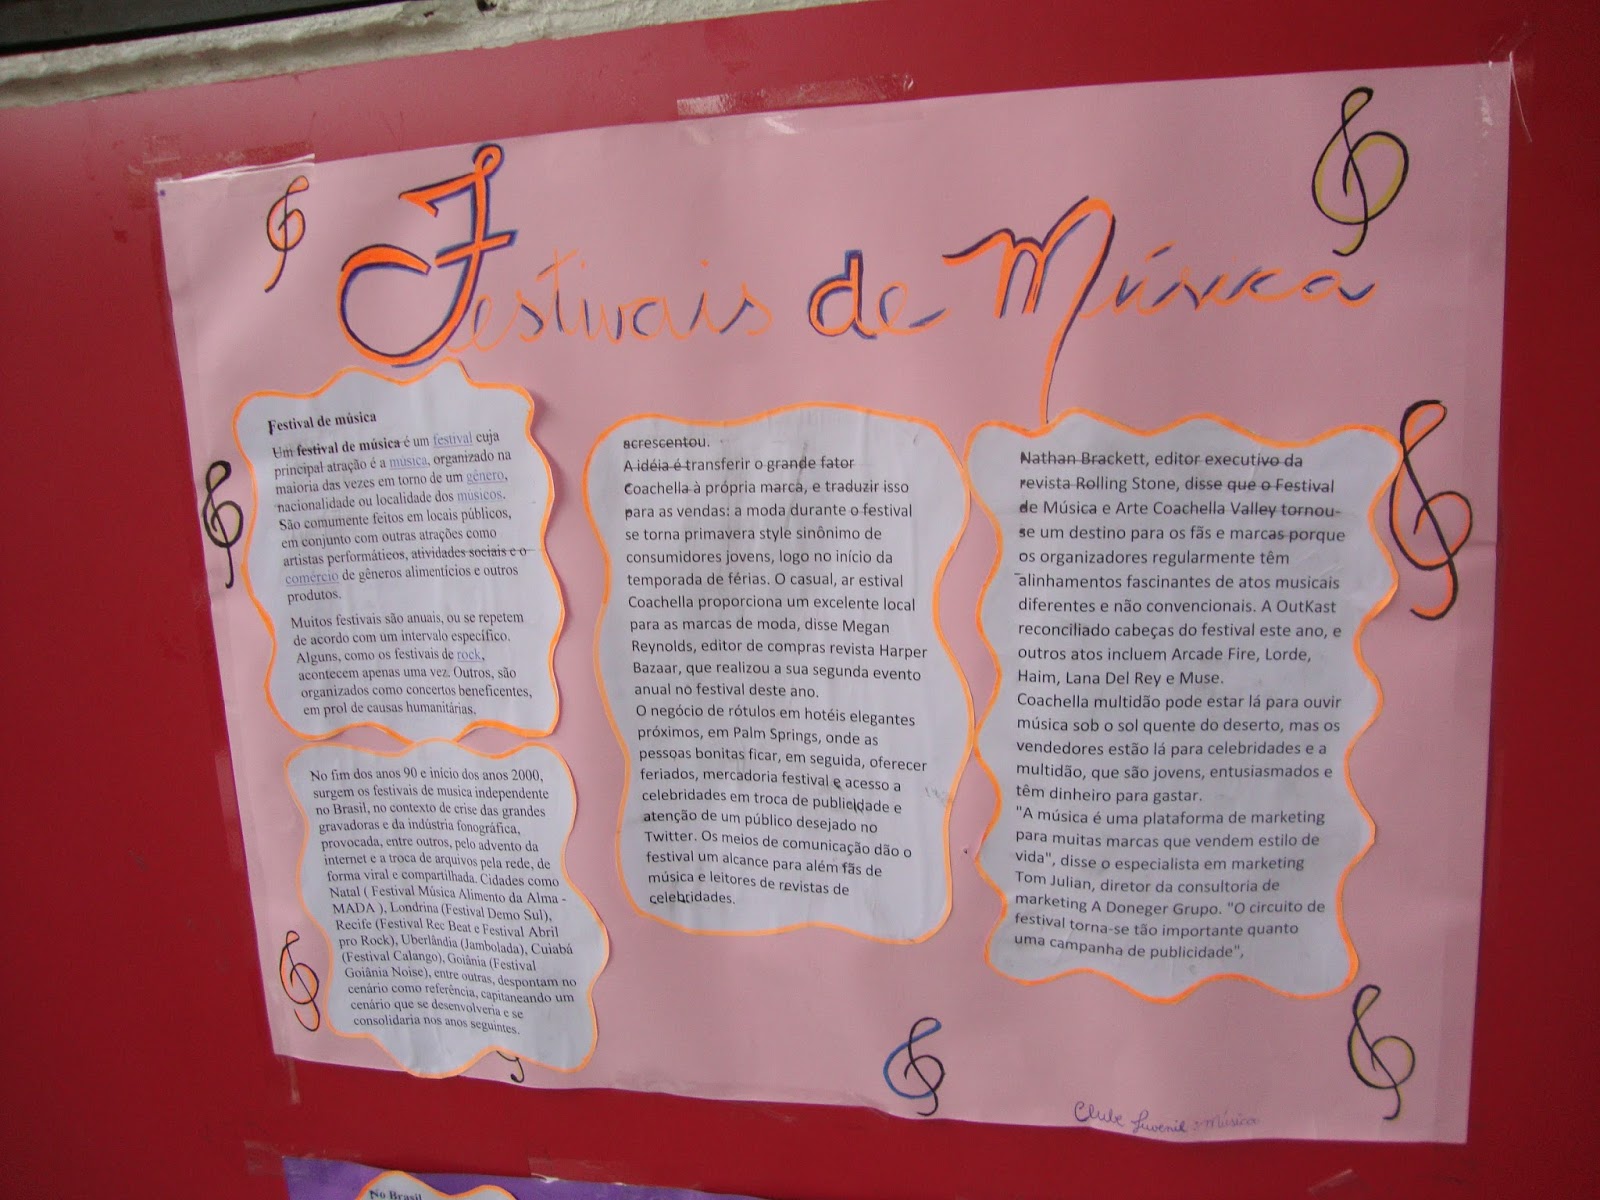 Festivais de Música
Festival de música
Um festival de música é um festival cuja
principal atração é a música, organizado na
maioria das vezes em torno de um gênero,
nacionalidade ou localidade dos músicos.
São comumente feitos em locais públicos,
em conjunto com outras atrações como
artistas performáticos, atividades sociais e o
comércio de gêneros alimentícios e outros
produtos.
Muitos festivais são anuais, ou se repetem
de acordo com um intervalo específico.
Alguns, como os festivais de rock,
acontecem apenas uma vez. Outros, são
organizados como concertos beneficentes,
em prol de causas humanitárias.
No fim dos anos 90 e início dos anos 2000,
surgem os festivais de musica independente
no Brasil, no contexto de crise das grandes
gravadoras e da indústria fonográfica,
provocada, entre outros, pelo advento da
internet e a troca de arquivos pela rede, de
forma viral e compartilhada. Cidades como
Natal ( Festival Música Alimento da Alma -
MADA ), Londrina (Festival Demo Sul),
Recife (Festival Rec Beat e Festival Abril
pro Rock), Uberlândia (Jambolada), Cuiabá
(Festival Calango), Goiânia (Festival
Goiânia Noise), entre outras, despontam no
cenário como referência, capitaneando um
cenário que se desenvolveria e se
consolidaria nos anos seguintes.
acrescentou.
A idéia é transferir o grande fator
Coachella à própria marca, e traduzir isso
para as vendas: a moda durante o festival
se torna primavera style sinônimo de
consumidores jovens, logo no início da
temporada de férias. O casual, ar estival
Coachella proporciona um excelente local
para as marcas de moda, disse Megan
Reynolds, editor de compras revista Harper
Bazaar, que realizou a sua segunda evento
anual no festival deste ano.
O negócio de rótulos em hotéis elegantes
próximos, em Palm Springs, onde as
pessoas bonitas ficar, em seguida, oferecer
feriados, mercadoria festival e acesso a
celebridades em troca de publicidade e
atenção de um público desejado no
Twitter. Os meios de comunicação dão o
festival um alcance para além fãs de
música e leitores de revistas de
celebridades.
Nathan Brackett, editor executivo da
revista Rolling Stone, disse que o Festival
de Música e Arte Coachella Valley tornou-
se um destino para os fãs e marcas porque
os organizadores regularmente têm
alinhamentos fascinantes de atos musicais
diferentes e não convencionais. A OutKast
reconciliado cabeças do festival este ano, e
outros atos incluem Arcade Fire, Lorde,
Haim, Lana Del Rey e Muse.
Coachella multidão pode estar lá para ouvir
música sob o sol quente do deserto, mas os
vendedores estão lá para celebridades e a
multidão, que são jovens, entusiasmados e
têm dinheiro para gastar.
"A música é uma plataforma de marketing
para muitas marcas que vendem estilo de
vida", disse o especialista em marketing
Tom Julian, diretor da consultoria de
marketing A Doneger Grupo. "O circuito de
festival torna-se tão importante quanto
uma campanha de publicidade",
Clube Juvenil: Música
No Brasil